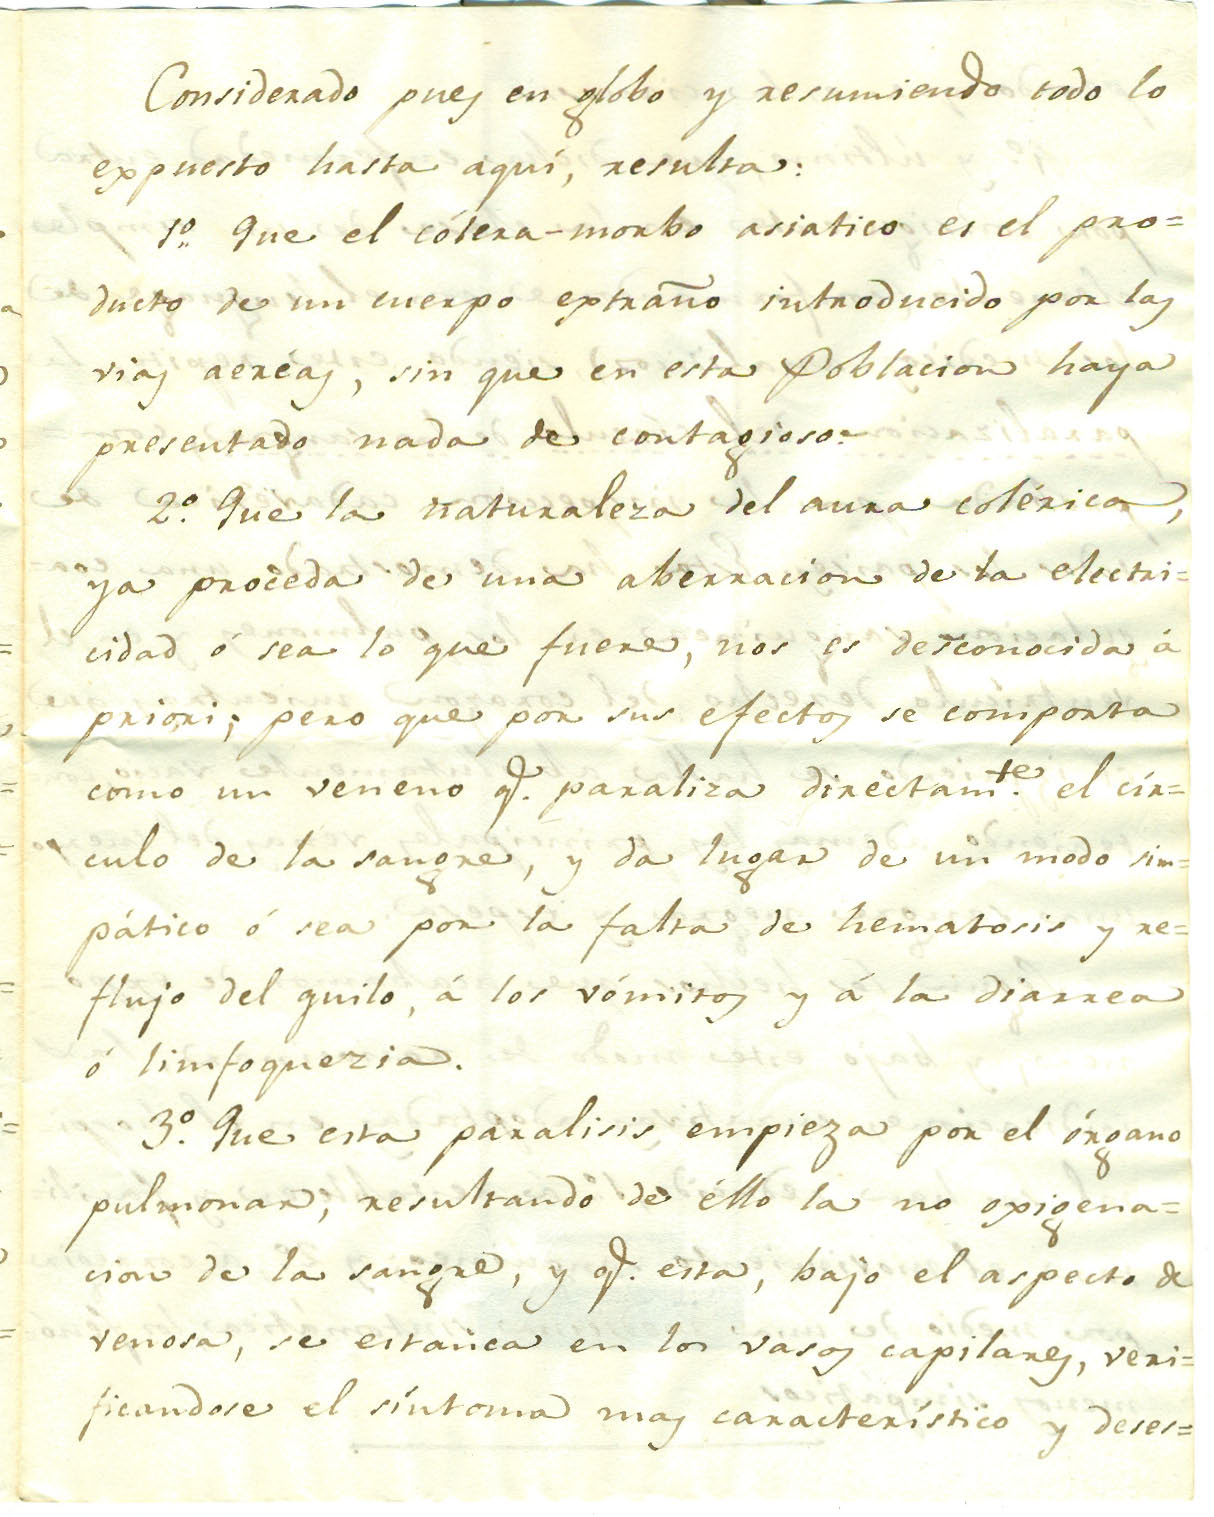 Considerado pues en globo y resumiendo todo lo
expuesto hasta aquí, resulta:
1º. Que el cólera-morbo asiatico es el pro=
ducto de un cuerpo extraño introducido por las
vias aeréas, sin que en esta Poblacion haya
presentado nada de contagioso.
2º. Que la naturaleza del aura colérica,
ya procéda de una aberracion de la electri=
cidad ó sea lo que fuere, nos es desconocida á
priori; pero que por sus efectos se comporta
como un veneno q. paraliza directamte. el cír=
culo de la sangre, y da lugar de un modo sim=
pático ó sea por la falta de hematosis y re=
flujo del quilo, á los vómitos y á la diarrea
ó limfoquezia.
3º. Que esta paralisis empieza por el órgano
pulmonar; resultando de éllo la no oxigena=
cion de la sangre, y q. esta, bajo el aspecto de
venosa, se estanca en los vasos capilares, veri=
ficandose el síntoma mas característico y deses=